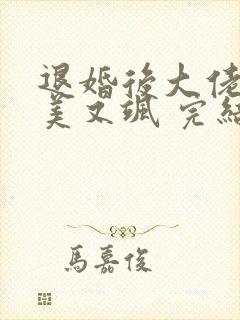 退婚後大佬
美又颯 完結
馬嘉俊